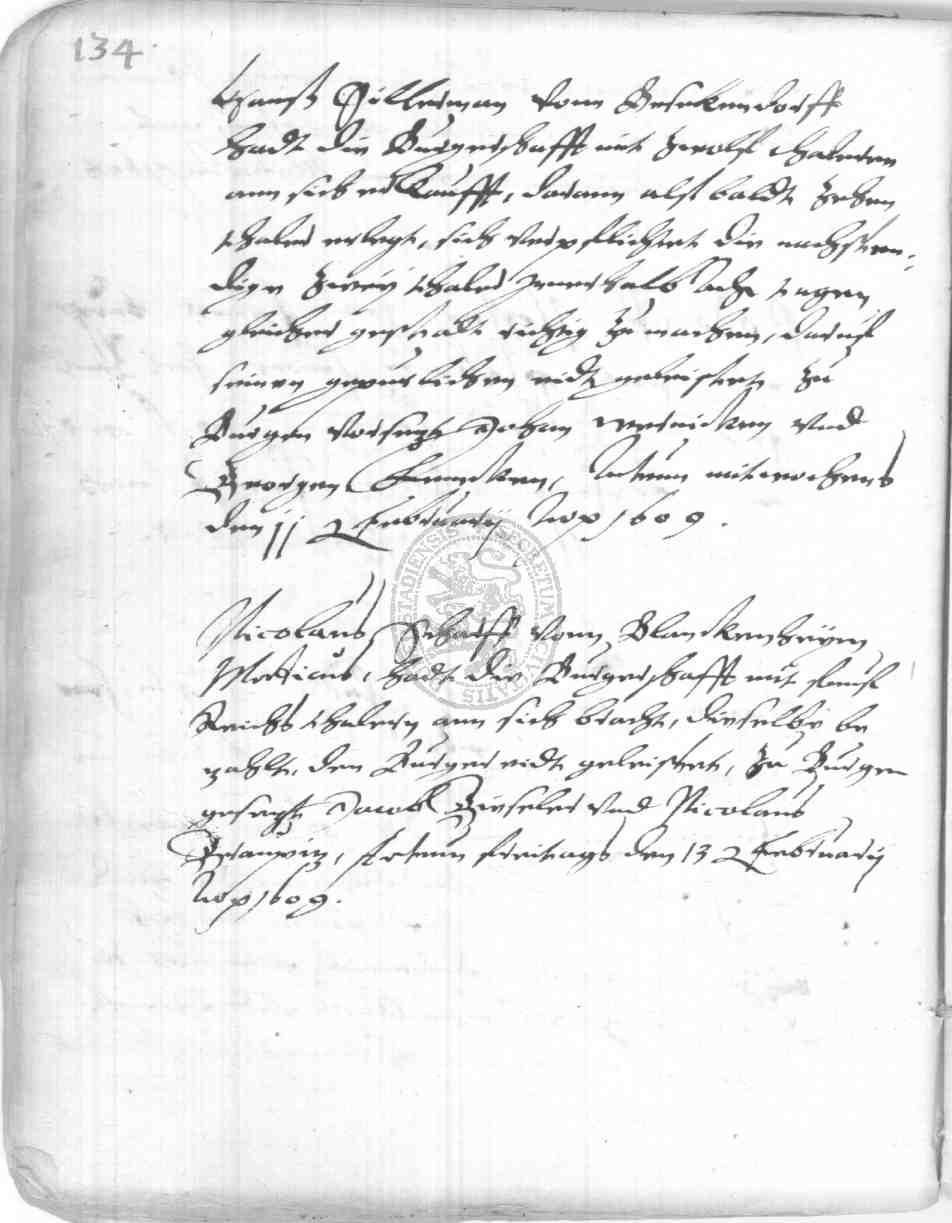 134.
Hanß Hillerman vonn Beseckendorff
hadt die Burgerschafft mit zwolff thalernn
ann sich erkaufft, darann alß baldt zehen
thaler erlegt, sich verpflichtet die nachsten-
dige zwey thaler innerhalb acht tagen
gleicher gestaldt richtig zu machen, darauf
seinen gepurlichen eidt geleistet, zu
Burgen vorsetzt Johan vnd
Georgen Actum mitwochens
den 11 Februarij Anno 1609.
Nicolaus Scharff vonn Blanckenheym
Musicus, hadt die Burgerschafft mit funf
Reichs thalern ann sich bracht, dieselbe be
zahlt, den Burger eidt geleistet, zu Burgen
gesetzt Jacob Zieseler vnd Nicolaus
Actum freitags den 13 Februarij
Anno 1609.
SECRETUM CIVITATIS STADIENSIS